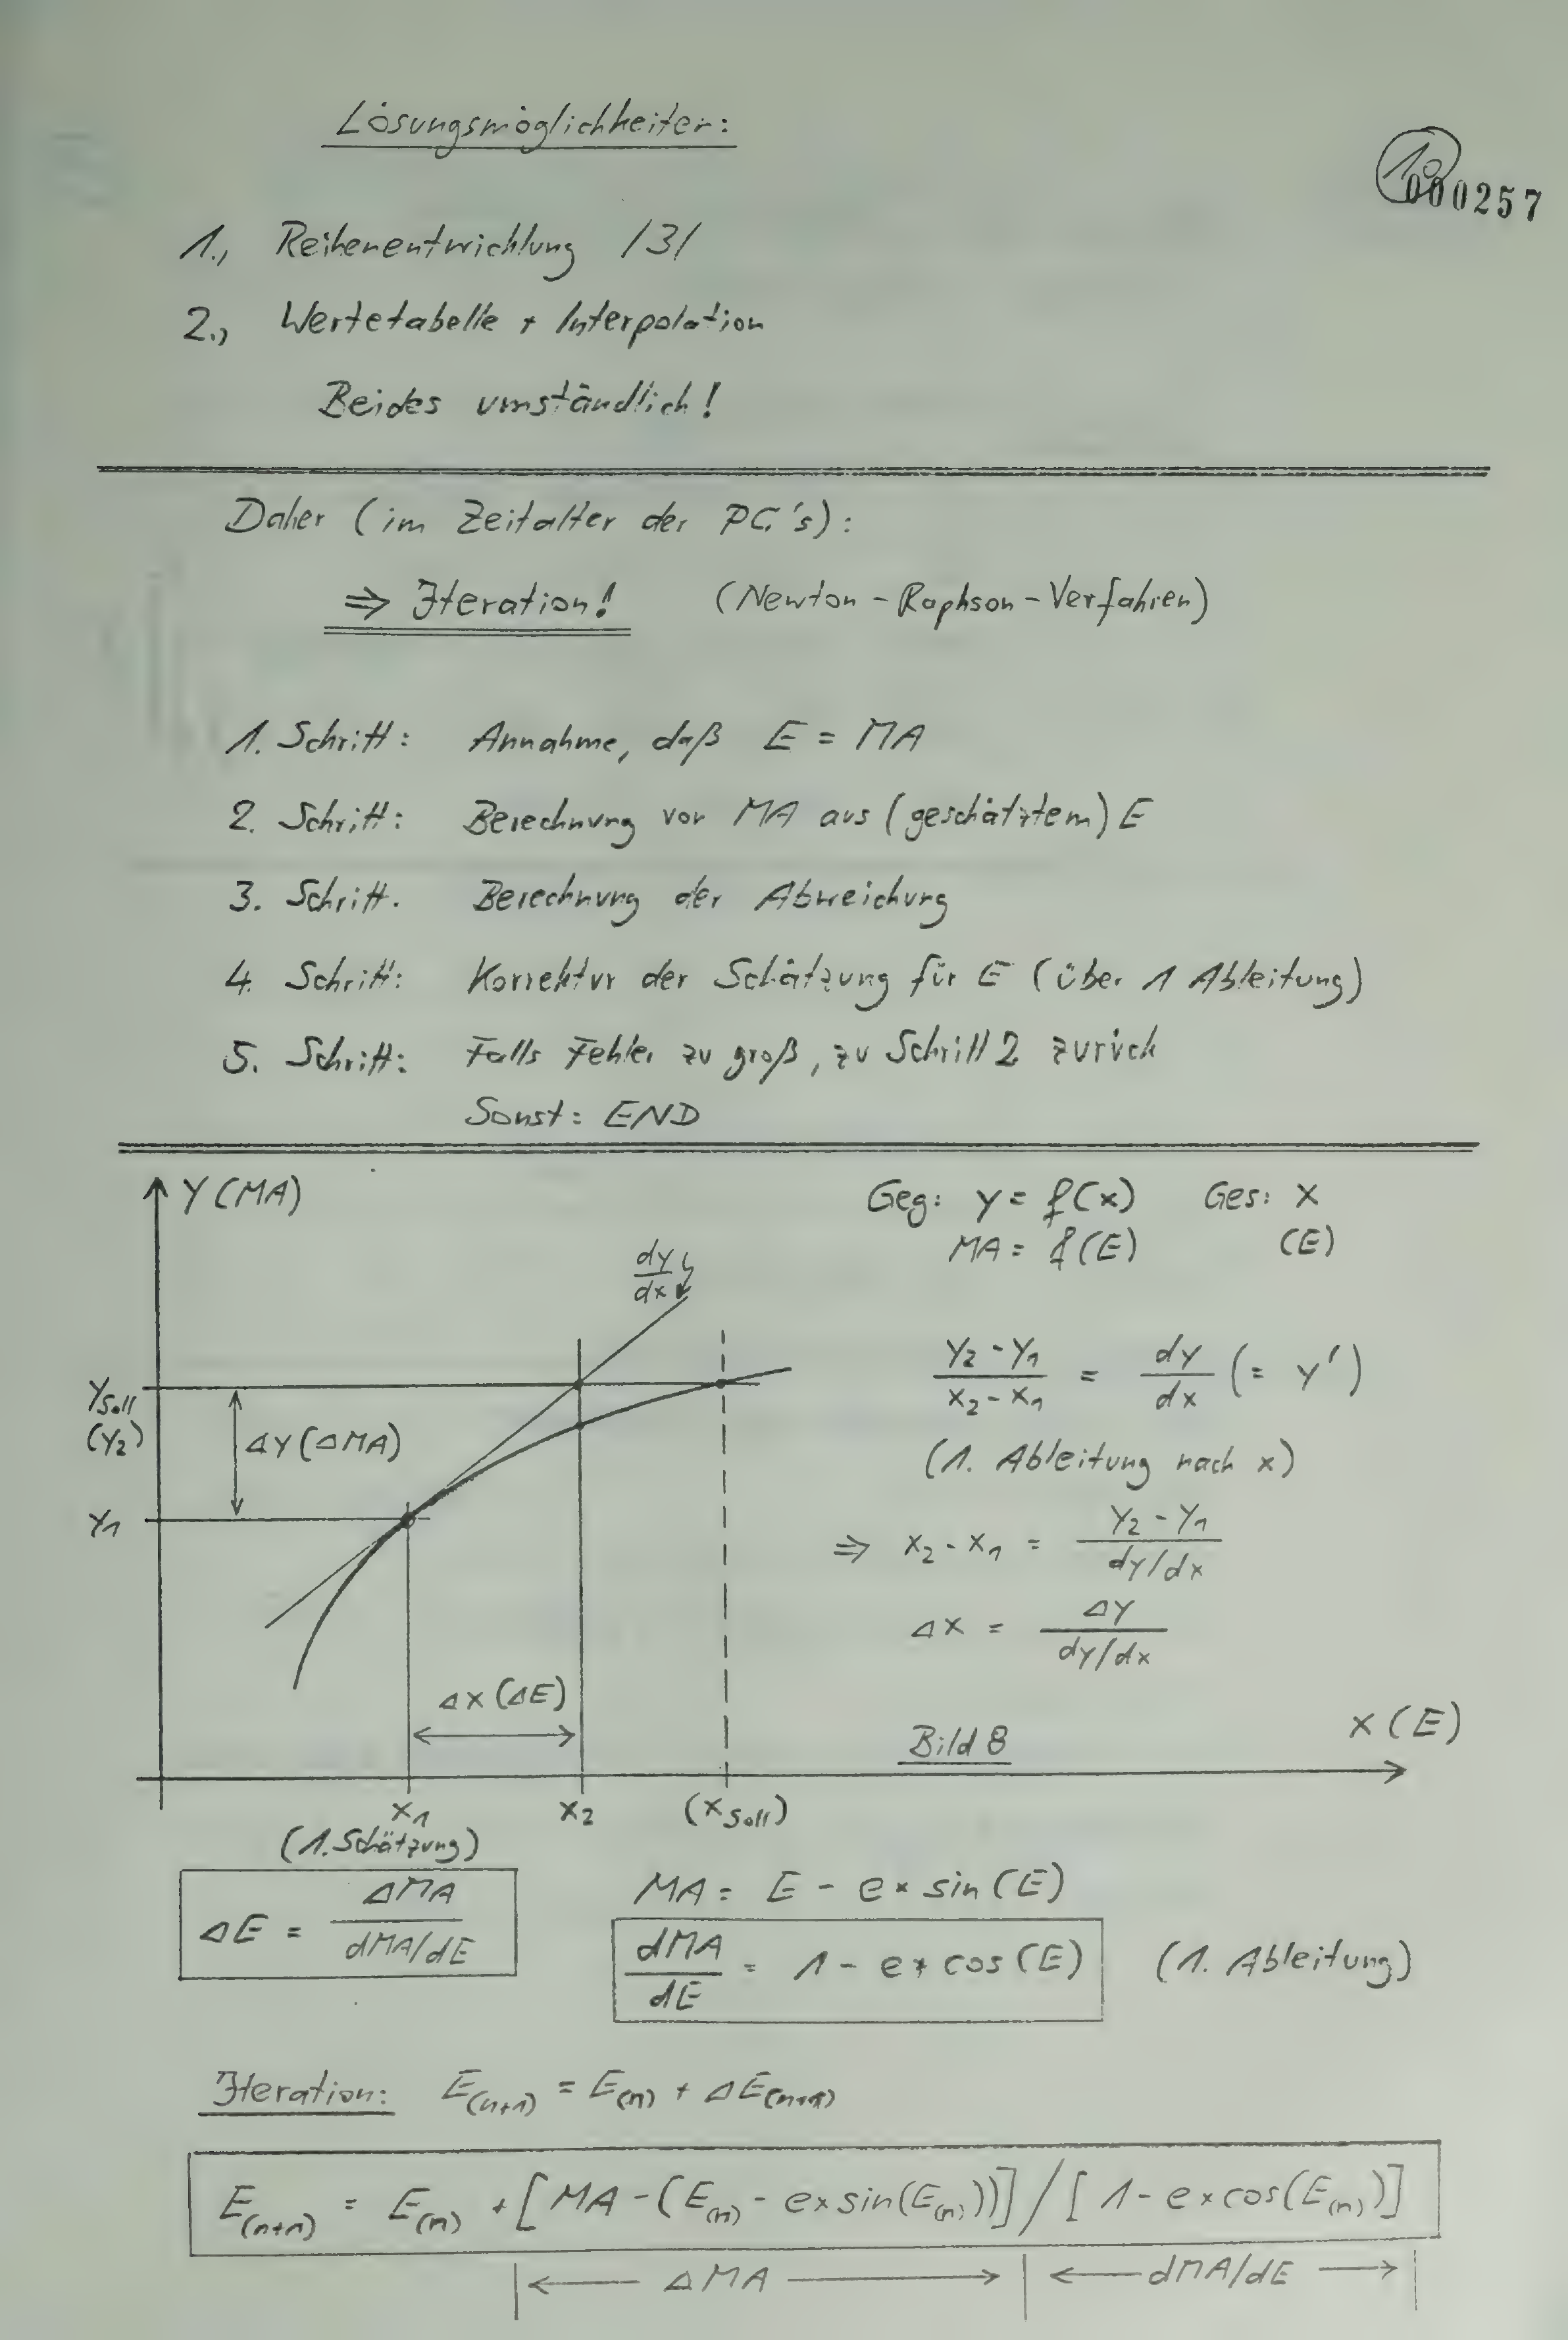 Lösungsmöglichkeiten:
10
000257
1., Reihenentwicklung /3/
2., Wertetabelle + Interpolation
Beides umständlich!
Daher (im Zeitalter der PC's):
⇒ Iteration! (Newton-Raphson-Verfahren)
1. Schritt: Annahme, daß E = MA
2. Schritt: Berechnung von MA aus (geschätztem) E
3. Schritt. Berechnung der Abweichung
4. Schritt: Korrektur der Schätzung für E (über 1 Ableitung)
5. Schritt: Falls Fehler zu groß, zu Schritt 2 zurück
Sonst: END
Y (MA)
Geg: y = f(x) Ges: x
MA = f(E) (E)
dy/dx
Y2 - Y1 / x2 - x1 = dy/dx (= y')
(1. Ableitung nach x)
YSoll
(Y2)
ΔY (ΔMA)
Y1
⇒ x2 - x1 = Y2 - Y1 / dy/dx
Δx = ΔY / dy/dx
Δx (ΔE)
Bild 8
x (E)
x1 x2 (xSoll)
(1. Schätzung)
ΔE = ΔMA / dMA/dE
MA = E - e * sin(E)
dMA/dE = 1 - e * cos(E) (1. Ableitung)
Iteration: E(n+1) = E(n) + ΔE(n+1)
E(n+1) = E(n) + [MA - (E(n) - e * sin(E(n)))] / [1 - e * cos(E(n))]
ΔMA dMA/dE